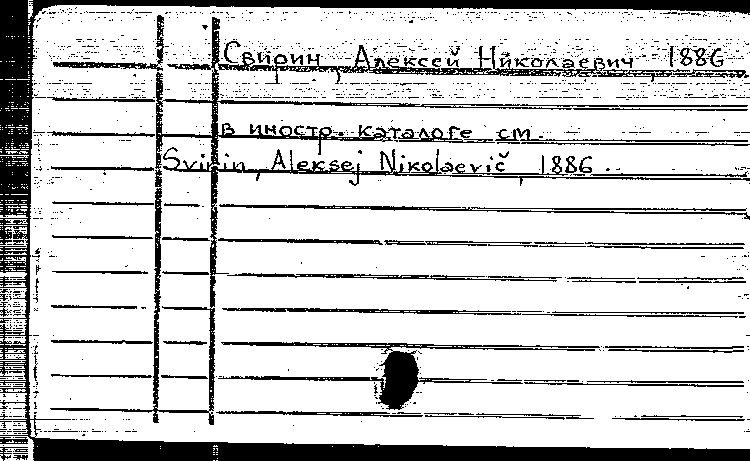 Свирин, Алексей Николаевич, 1886
в иностр. каталоге см.
Svirin, Aleksej Nikolaevič, 1886